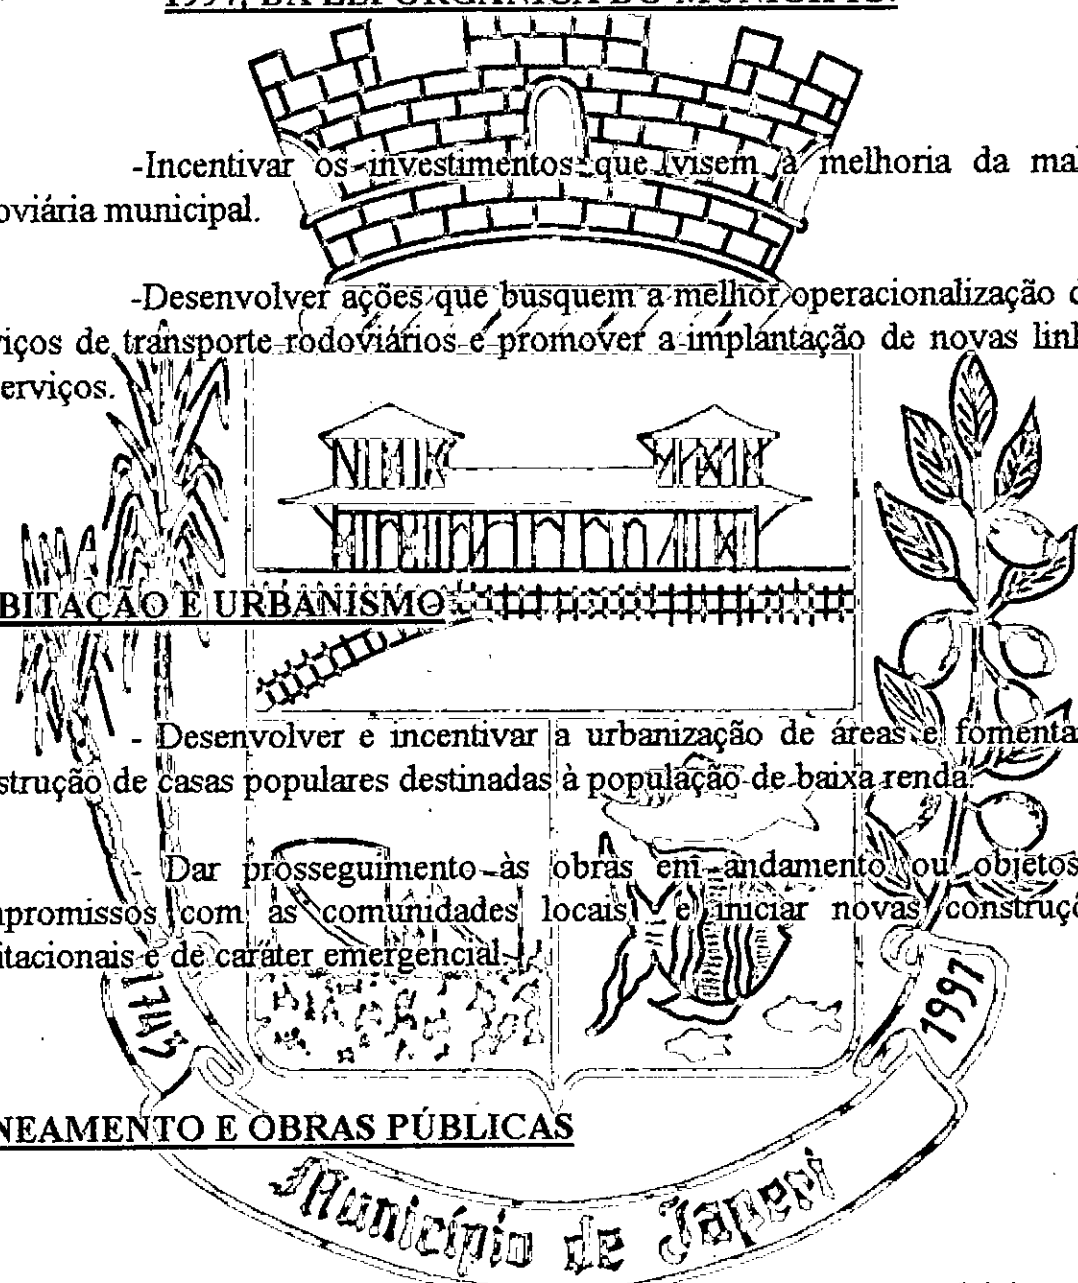 1997, DA LEI ORGÂNICA DO MUNICÍPIO.
-Incentivar os investimentos que visem à melhoria da mal
oviária municipal.
-Desenvolver ações que busquem a melhor operacionalização d
viços de transporte rodoviários e promover a implantação de novas linh
erviços.
BITAÇÃO E URBANISMO
- Desenvolver e incentivar a urbanização de áreas e fomenta
strução de casas populares destinadas à população de baixa renda.
- Dar prosseguimento às obras em andamento ou objetos
mpromissos com as comunidades locais, e iniciar novas construçõ
itacionais e de caráter emergencial.
1743
1997
NEAMENTO E OBRAS PÚBLICAS
Município de Japeri